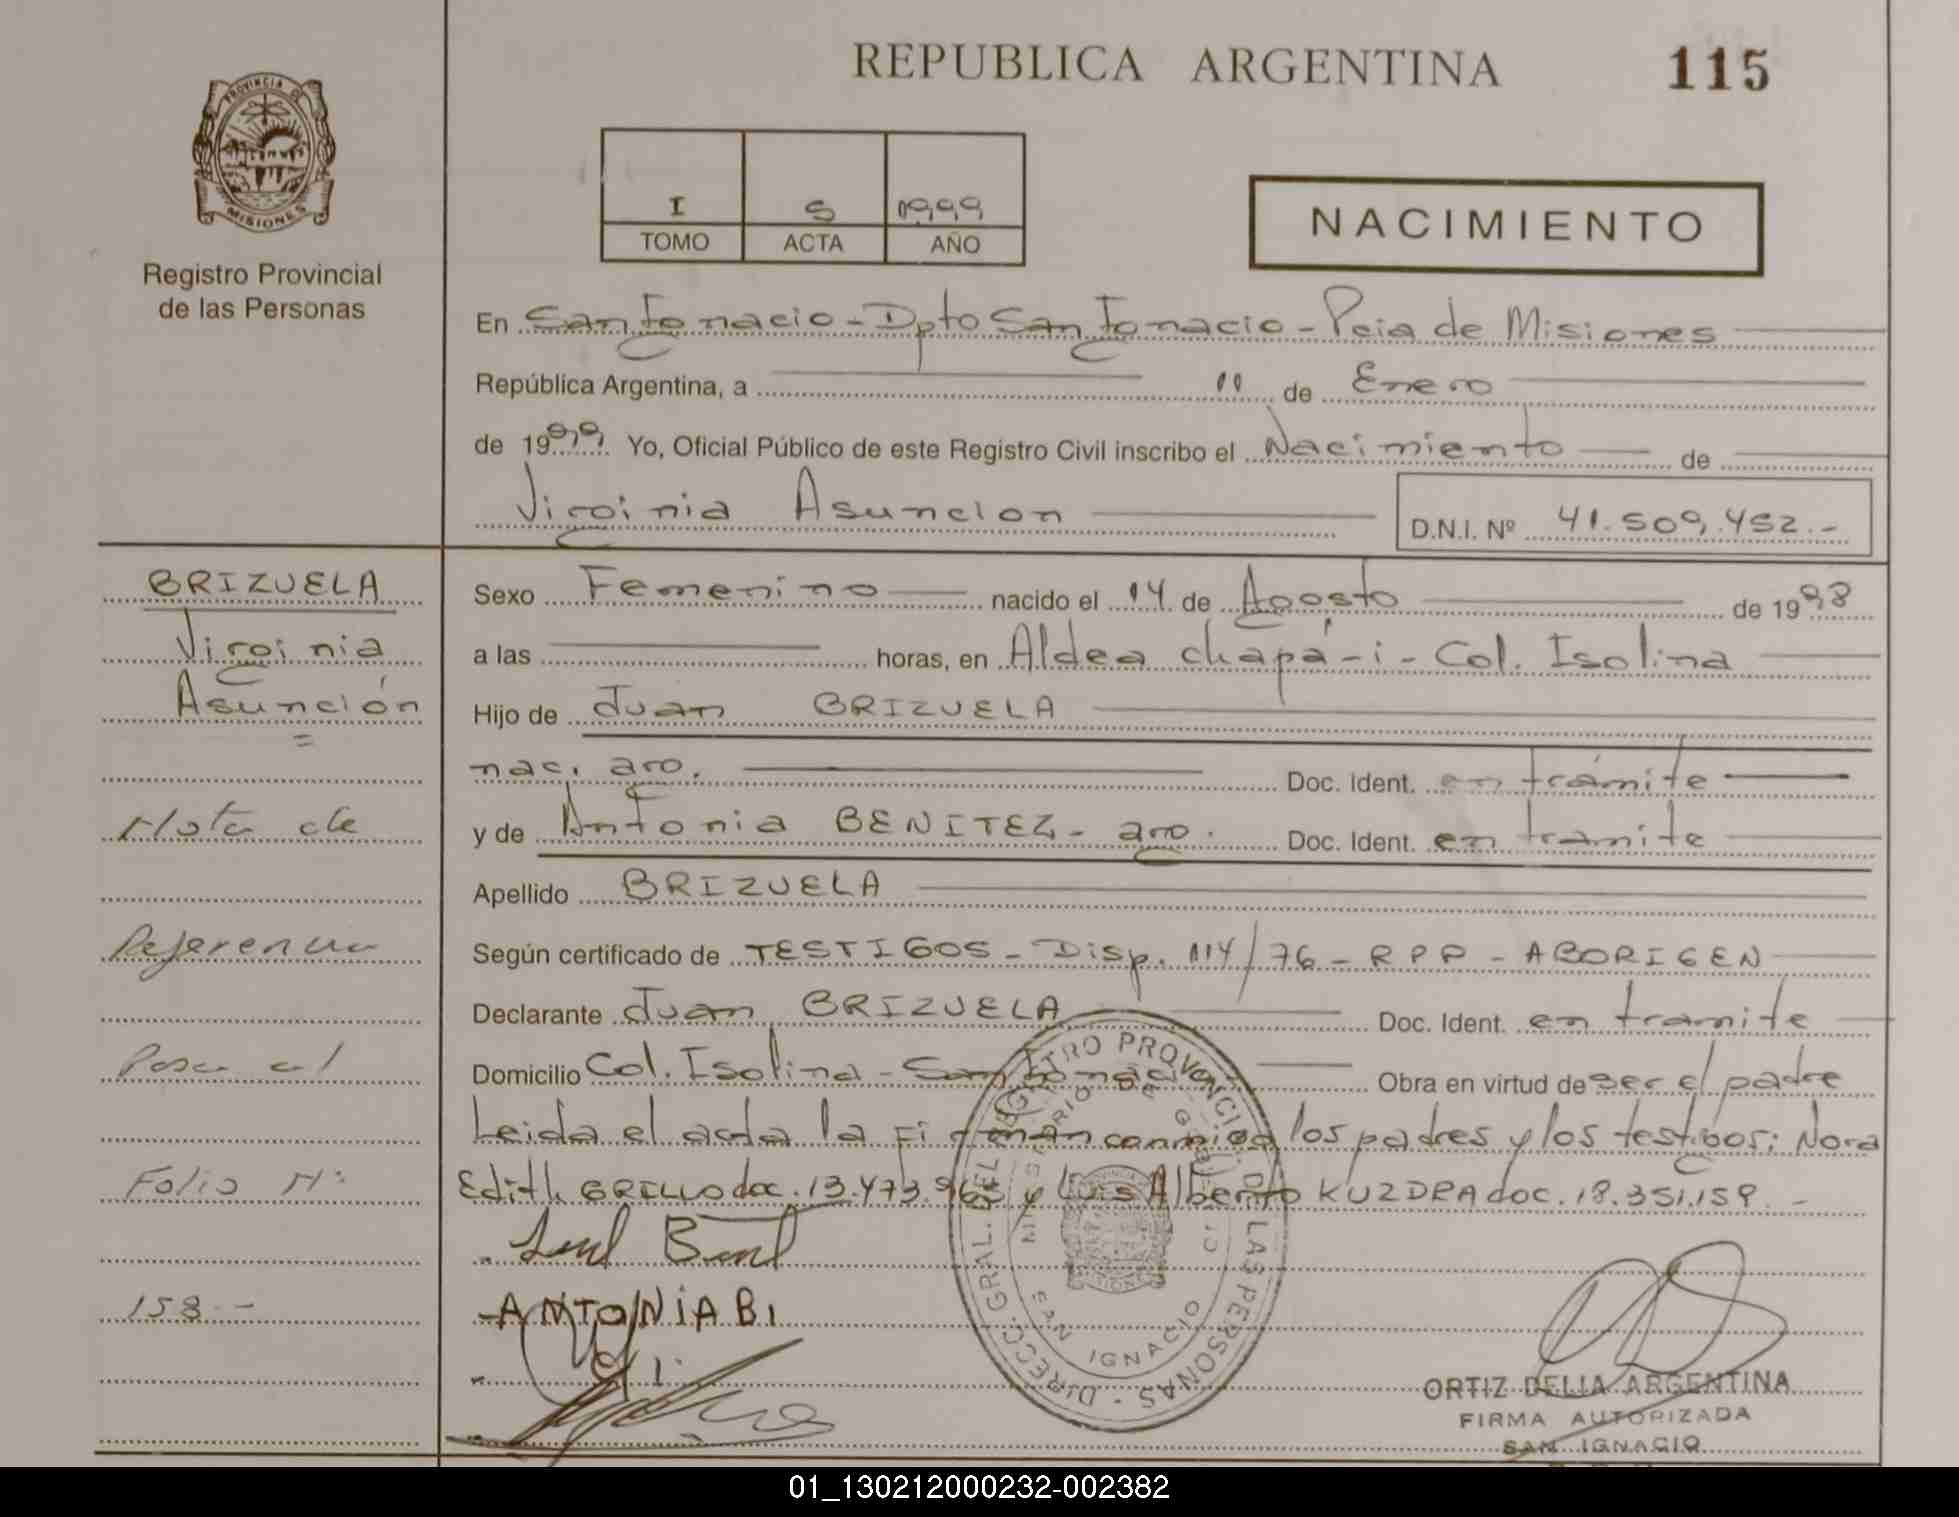 REPUBLICA ARGENTINA
115
PROVINCIA DE
MISIONES
Registro Provincial
de las Personas
I S 1999
TOMO ACTA AÑO
NACIMIENTO
En San Ignacio - Dpto San Ignacio - Pcia de Misiones
República Argentina, a 11 de Enero
de 1999 Yo, Oficial Público de este Registro Civil inscribo el Nacimiento de
Virginia Asuncion
D.N.I. Nº 41.509.452.-
BRIZUELA
Virginia
Asunción
=
Nota de
Referencia
Pasa al
Folio Nº
158.-
Sexo Femenino nacido el 14 de Agosto de 1998
a las horas, en Aldea chapá-i - Col. Isolina
Hijo de Juan BRIZUELA
nac. arg. Doc. Ident. en trámite
y de Antonia BENITEZ - arg. Doc. Ident. en tramite
Apellido BRIZUELA
Según certificado de TESTIGOS - Disp. 114/76 - RPP - ABORIGEN
Declarante Juan BRIZUELA Doc. Ident. en tramite
Domicilio Col. Isolina - San Ignacio Obra en virtud de ser el padre
Leida el acta la firman conmigo los padres y los testigos: Nora
Edith GRILLO doc. 13.473.965 y Luis Alberto KUZDRA doc. 18.351.159 -
ANTONiA Bi
DIRECC. GRAL. DEL REGISTRO PROVINCIAL DE LAS PERSONAS
MINISTERIO DE GOBIERNO
SAN IGNACIO
ORTIZ DELIA ARGENTINA
FIRMA AUTORIZADA
SAN IGNACIO
01_130212000232-002382